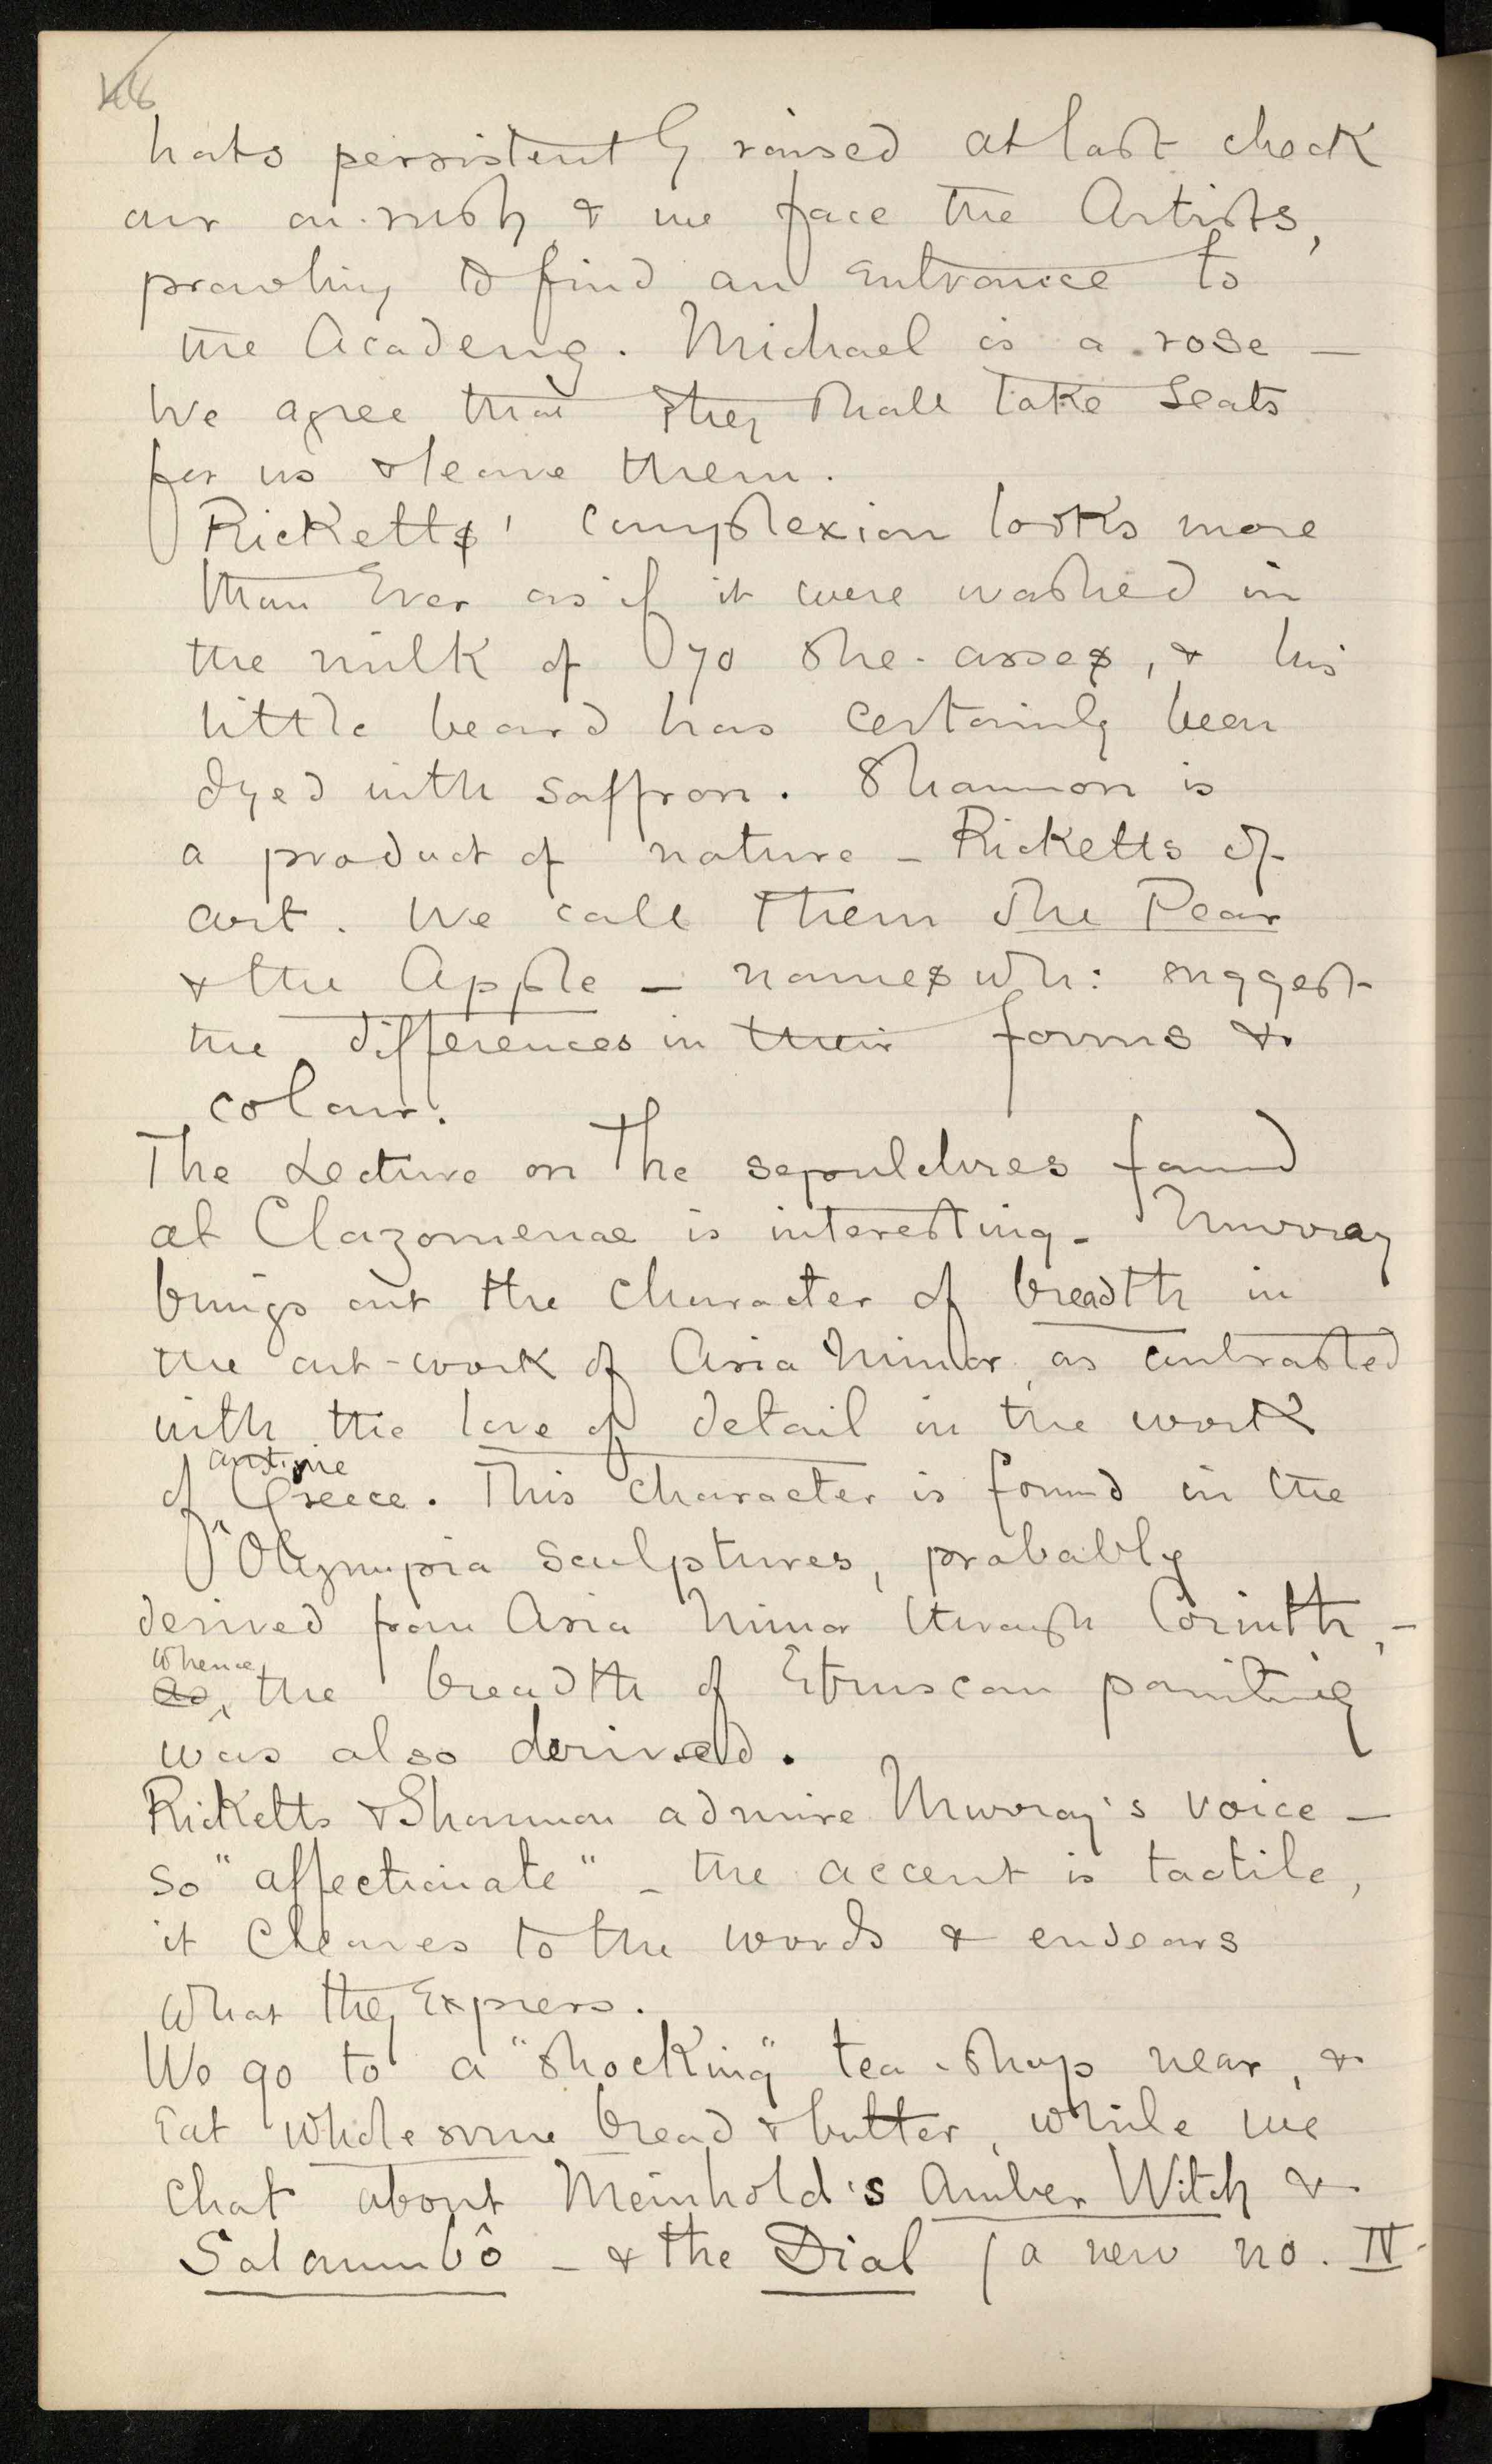 46
hats persistently raised at last check
our on-rush, & we face the Artists,
prowling to find an entrance to
the Academy. Michael is a rose —
We agree that they shall take seats
for us & leave them.
Ricketts' complexion looks more
than Ever as if it were washed in
the milk of 70 she-asses, & his
little beard has certainly been
dyed with saffron. Shannon is
a product of nature – Ricketts of
art. We call them The Pear
& the Apple – names wh: suggest
the differences in their forms &
colour.
The Lecture on the sepulchres found
at Clazomenae is interesting – Murray
brings out the character of breadth in
the art-work of Asia Minor, as contrasted
with the love of detail in the work
antique
of Greece. This character is found in the
Olympia sculptures, probably
derived from Asia Minor through Corinth, –
whence
as, the breadth of Etruscan painting
was also derived.
Ricketts & Shannon admire Murray's voice –
so "affectionate" – the accent is tactile,
it Cleaves to the words & endears
what they Express.
We go to a "shocking" tea-shop near, &
Eat wholesome bread & butter, while we
chat about Meinhold's Amber Witch &
Salammbô – & the Dial (a new no. IV